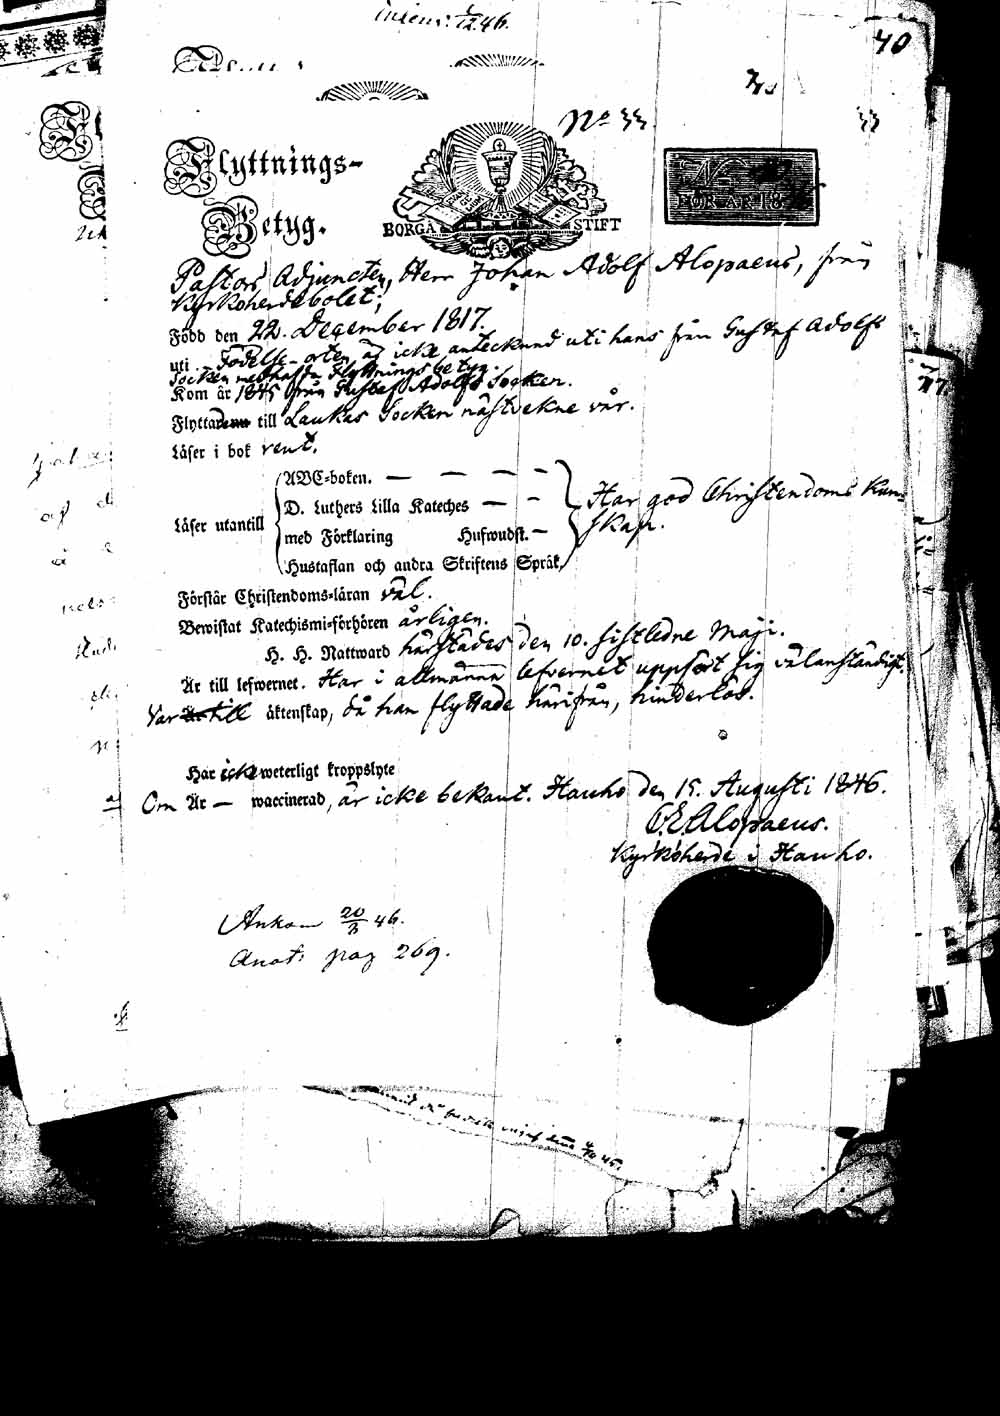 40
No 33
33
Flyttnings-
Betyg.
BORGÅ STIFT
No
FÖR ÅR 18
Pastors Adjuncten, Herr Johan Adolf Alopaeus, från
Kyrkoherdebolet;
Född den 22. December 1817.
uti Födelse-orten är icke antecknad uti hans från Gustaf Adolfs
Socken medhafda Flyttningsbetyg.
Kom år 1845 från Gustaf Adolfs Socken.
Flyttade till Laukas Socken nästvekne vår.
Läser i bok rent.
Läser utantill
ABC-boken. — — — —
D. Luthers Lilla Kateches — —
med Förklaring Hufwudst. —
Hustaflan och andra Skriftens Språk,
Har god Christendoms kun-
skap.
Förstår Christendoms-läran väl.
Bewistat Katechismi-förhören årligen.
H. H. Nattward härstädes den 10. sistledne Maji.
Är till lefwernet. Har i allmänna lefvernet uppfört sig välanständigt.
Var äktenskap, då han flyttade härifrån, hinderlös.
Har icke weterligt kroppslyte
Om Är — waccinerad, är icke bekant. Hauho den 15. Augusti 1846.
C. E. Alopaeus.
Kyrkoherde i Hauho.
Ankom 20/3 46.
Anot: pag 269.